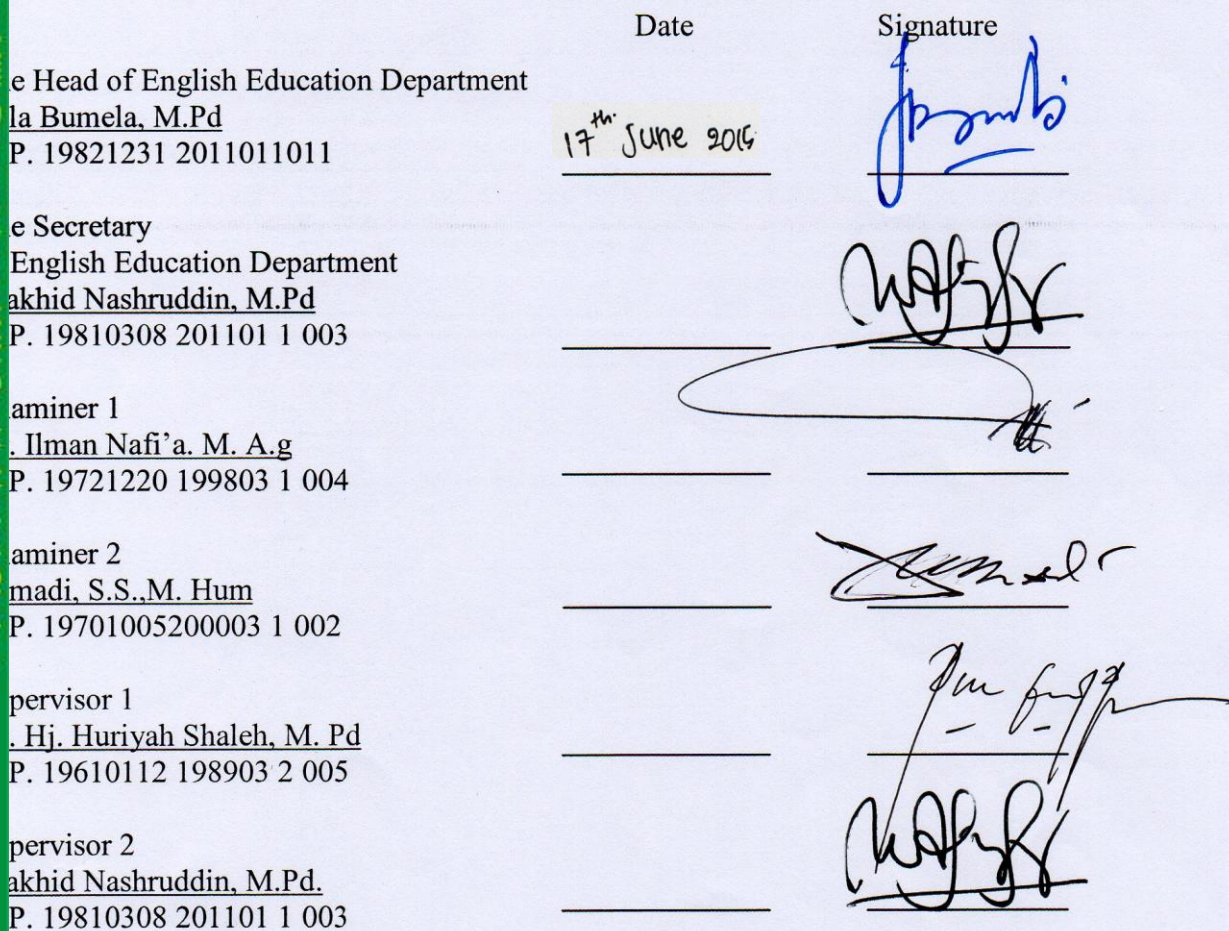 Date Signature
e Head of English Education Department
la Bumela, M.Pd
P. 19821231 2011011011
17th June 2015
e Secretary
English Education Department
akhid Nashruddin, M.Pd
P. 19810308 201101 1 003
aminer 1
. Ilman Nafi’a. M. A.g
P. 19721220 199803 1 004
aminer 2
madi, S.S.,M. Hum
P. 19701005200003 1 002
pervisor 1
. Hj. Huriyah Shaleh, M. Pd
P. 19610112 198903 2 005
pervisor 2
akhid Nashruddin, M.Pd.
P. 19810308 201101 1 003